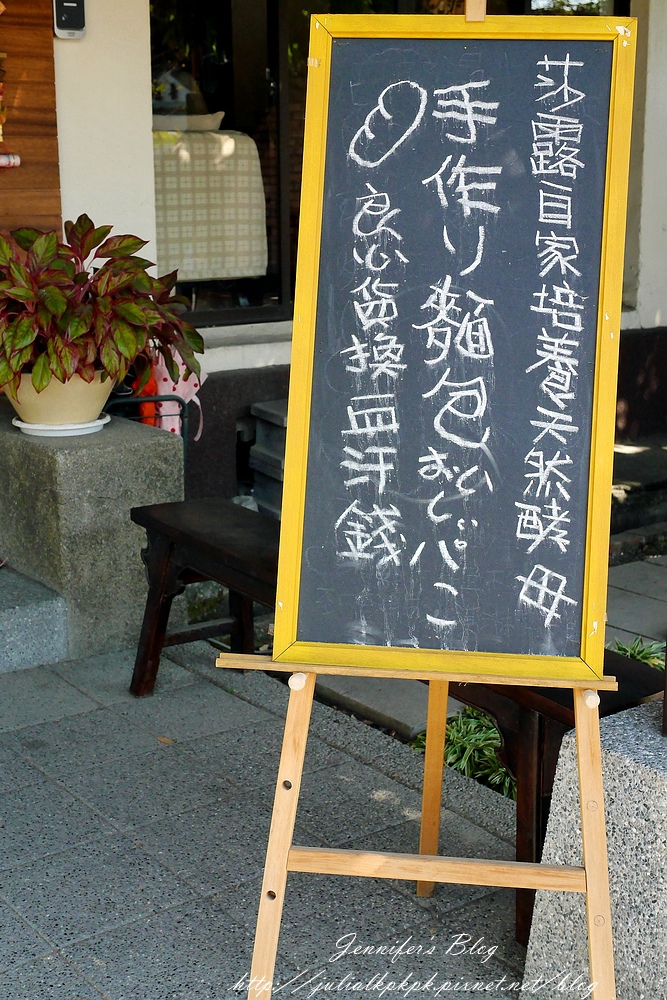 莎露自家培養天然酵母
手作り麵包おいしいパン
良心貨換血汗錢
Jennifer's Blog
http://julialkpkpk.pixnet.net/blog